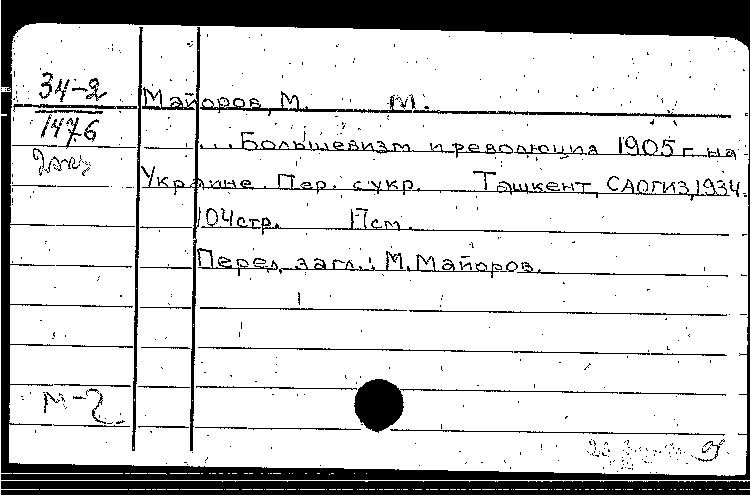 34-2
1476
2 экз
Майоров, М. М.
... Большевизм и революция 1905 г. на
Украине. Пер. с укр. Ташкент, САОГИЗ, 1934.
104 стр. 17 см.
Перед загл.: М. Майоров.
М-2